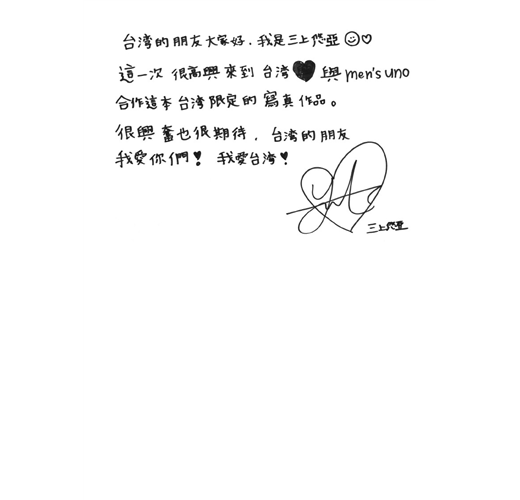 台湾的朋友大家好，我是三上悠亞☺♡
這一次 很高興 來到 台湾♥ 與 men's uno
合作這本台湾限定的 寫真作品。
很興奮也很期待，台湾的朋友
我愛你們！ 我愛台湾！
三上悠亞